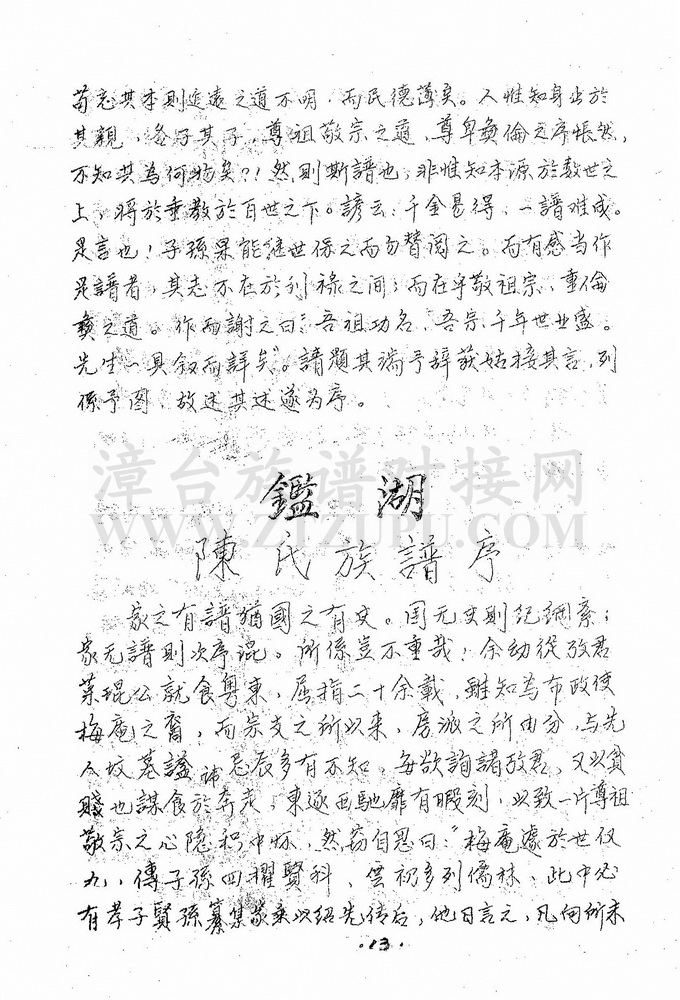 苟忘其本則追遠之道不明，而民德薄矣。人惟知身出於
其親，各子其子，尊祖敬宗之道，尊卑彝倫之序悵然，
不知其為何物矣？！然則斯譜也，非惟知本源於數世之
上，將於垂教於百世之下。諺云：千金易得，一譜难成。
是言也！子孫果能继世保之而勿替阅之。而有感当作
是譜者，其志不在於利禄之間；而在乎敬祖宗、重倫
彝之道。作而謝之曰："吾祖功名，吾宗千年世业盛。
先生一具叙而詳矣"。請題其端予辞 姑接其言，列
係予图，故述其述遂为序。
鑑湖
陳氏族譜序
家之有譜猶國之有史。国元史則纪綱紊；
家无譜則次序混。所係豈不重哉！余幼從故君
菜琨公就食粤東，屈指二十余載，雖知为布政使
梅庵之裔，而宗支之所以来，房派之所由分，与先
人坟墓諡諱忌辰多有不知，每欲詢諸故君，又以貧
賤也謀食於奔走，東逐西馳靡有暇刻，以致一片尊祖
敬宗之心隐积中怀，然窃自思曰："梅庵遽於世仅
九，傳子孫四擢賢科，雲礽多列儒林，此中必
有孝子賢孫纂集家乘以绍先传后，他日言之，凡向所未
·13·
漳台族谱对接网
WWW.ZTZUPU.COM